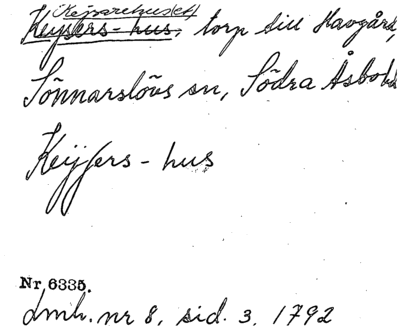 (Kejsarehuset)
Keysers-hus, torp till Havgård,
Sönnarslövs sn, Södra Åsbo hd
Keijsers - hus
Nr 6335.
dmh. nr 8, sid. 3, 1792